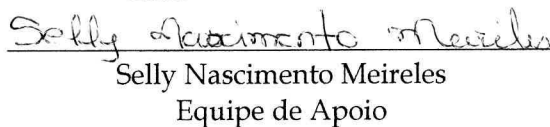 Selly Nascimento Meireles
Selly Nascimento Meireles
Equipe de Apoio